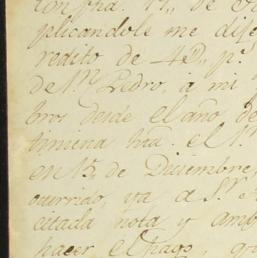 plicandole me dife
redito de 4 D, p.r
de Dn. Pedro, a mi
bros desde el año de
timiena hta. el 1º
en 15 de Diciembre,
ocurrido, va a S.r
citada nota y amb
hacer el pago, qu